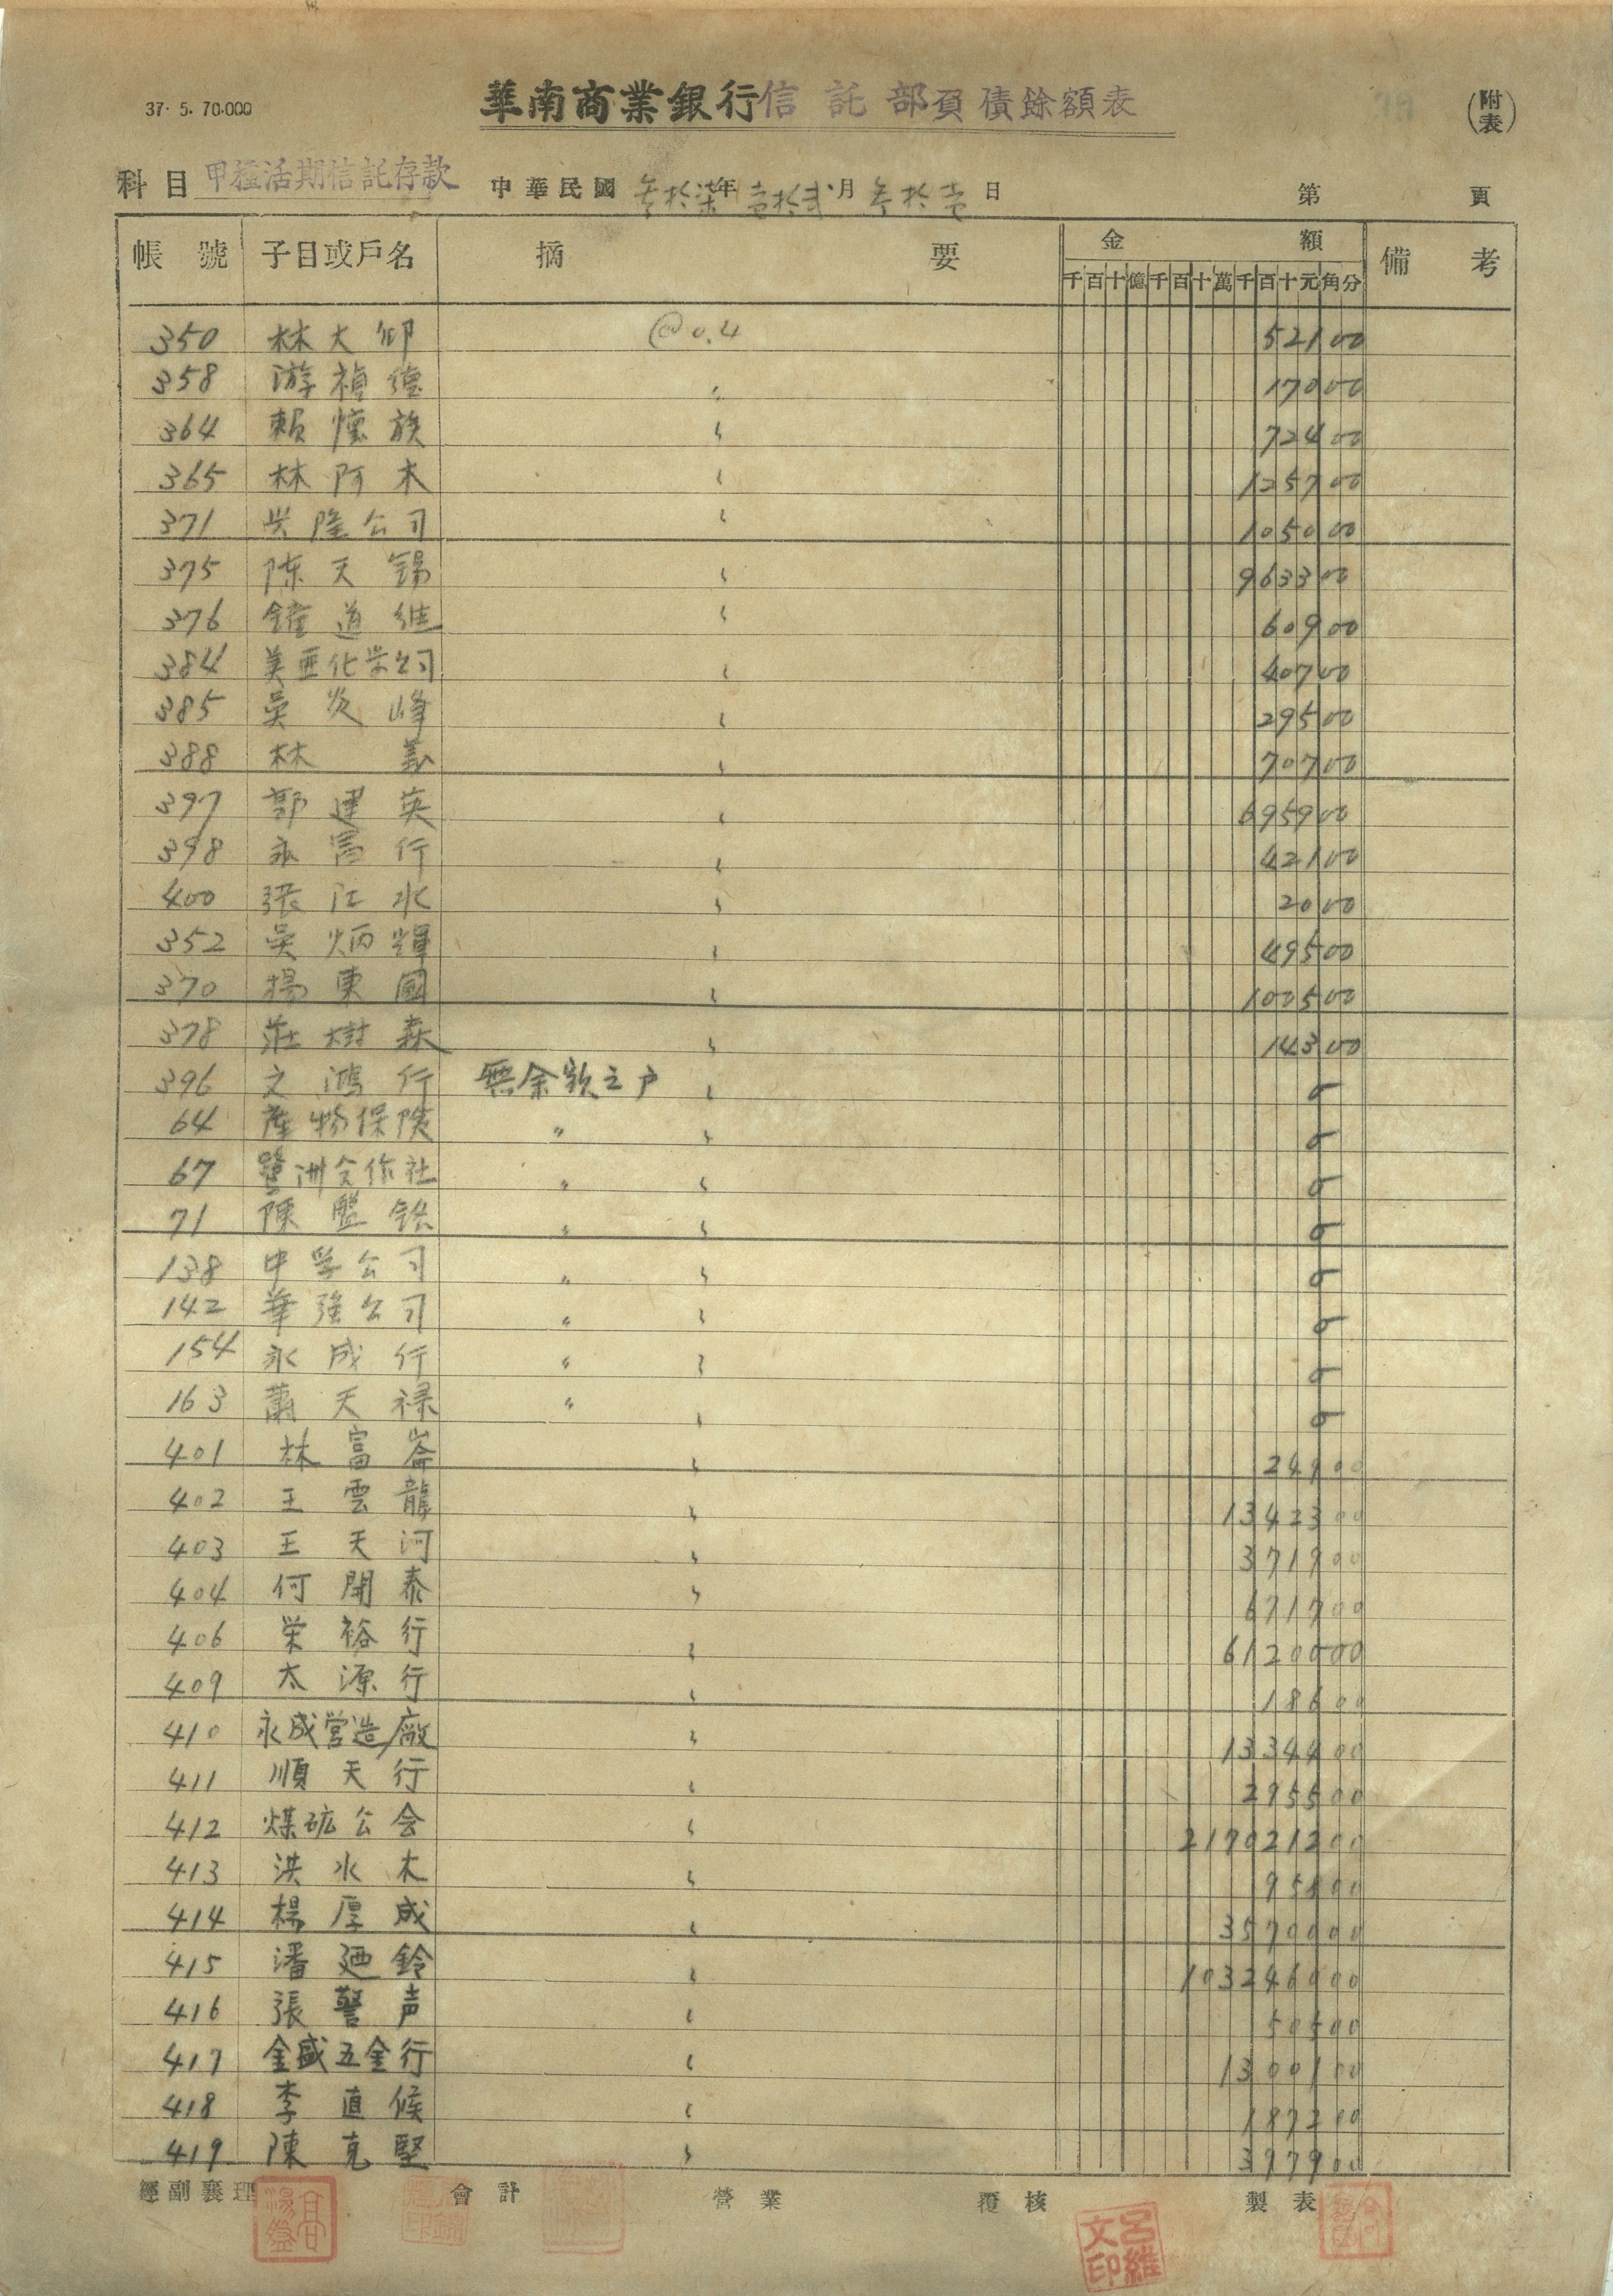 37. 5. 70.000
華南商業銀行信託部負債餘額表
(附表)
科目 甲種活期信託存款 中華民國 叁拾柒年 壹拾弍月 叁拾壹日 第 頁
帳號 子目或戶名 摘要 金額 備考
千百十億千百十萬千百十元角分
350 林大 @0.4 52100
358 游禎德 〃 17000
364 賴懷族 〃 72400
365 林阿木 〃 125700
371 兴隆公司 〃 105000
375 陈天錫 〃 963300
376 鐘道继 〃 60900
384 美亜化学公司 〃 40700
385 吳炎峰 〃 29500
388 林義 〃 70700
397 郭建英 〃 695900
398 永富行 〃 42100
400 張江水 〃 2000
352 吳炳輝 〃 49500
370 楊東國 〃 100500
378 莊樹森 〃 14300
396 文鴻行 無余欵之户 〃 0
64 產物保険 〃 〃 0
67 鷺洲合作社 〃 〃 0
71 陳盤銘 〃 〃 0
138 中孚公司 〃 〃 0
142 華強公司 〃 〃 0
154 永成行 〃 〃 0
163 蕭天禄 〃 〃 0
401 林富崙 〃 24900
402 王雲龍 〃 1342300
403 王天河 〃 371900
404 何開泰 〃 671700
406 栄裕行 〃 6120000
409 太源行 〃 18600
410 永成営造廠 〃 1334400
411 順天行 〃 295500
412 煤砿公会 〃 217021200
413 洪水木 〃 95100
414 楊厚成 〃 3570000
415 潘廼鈴 〃 103246000
416 張警声 〃 50500
417 金盛五金行 〃 1300100
418 李直候 〃 187200
419 陳克堅 〃 397900
經副襄理 會計 營業 覆核 製表
呂維文印